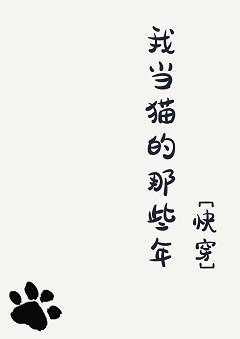 我当猫的那些年
[快穿]